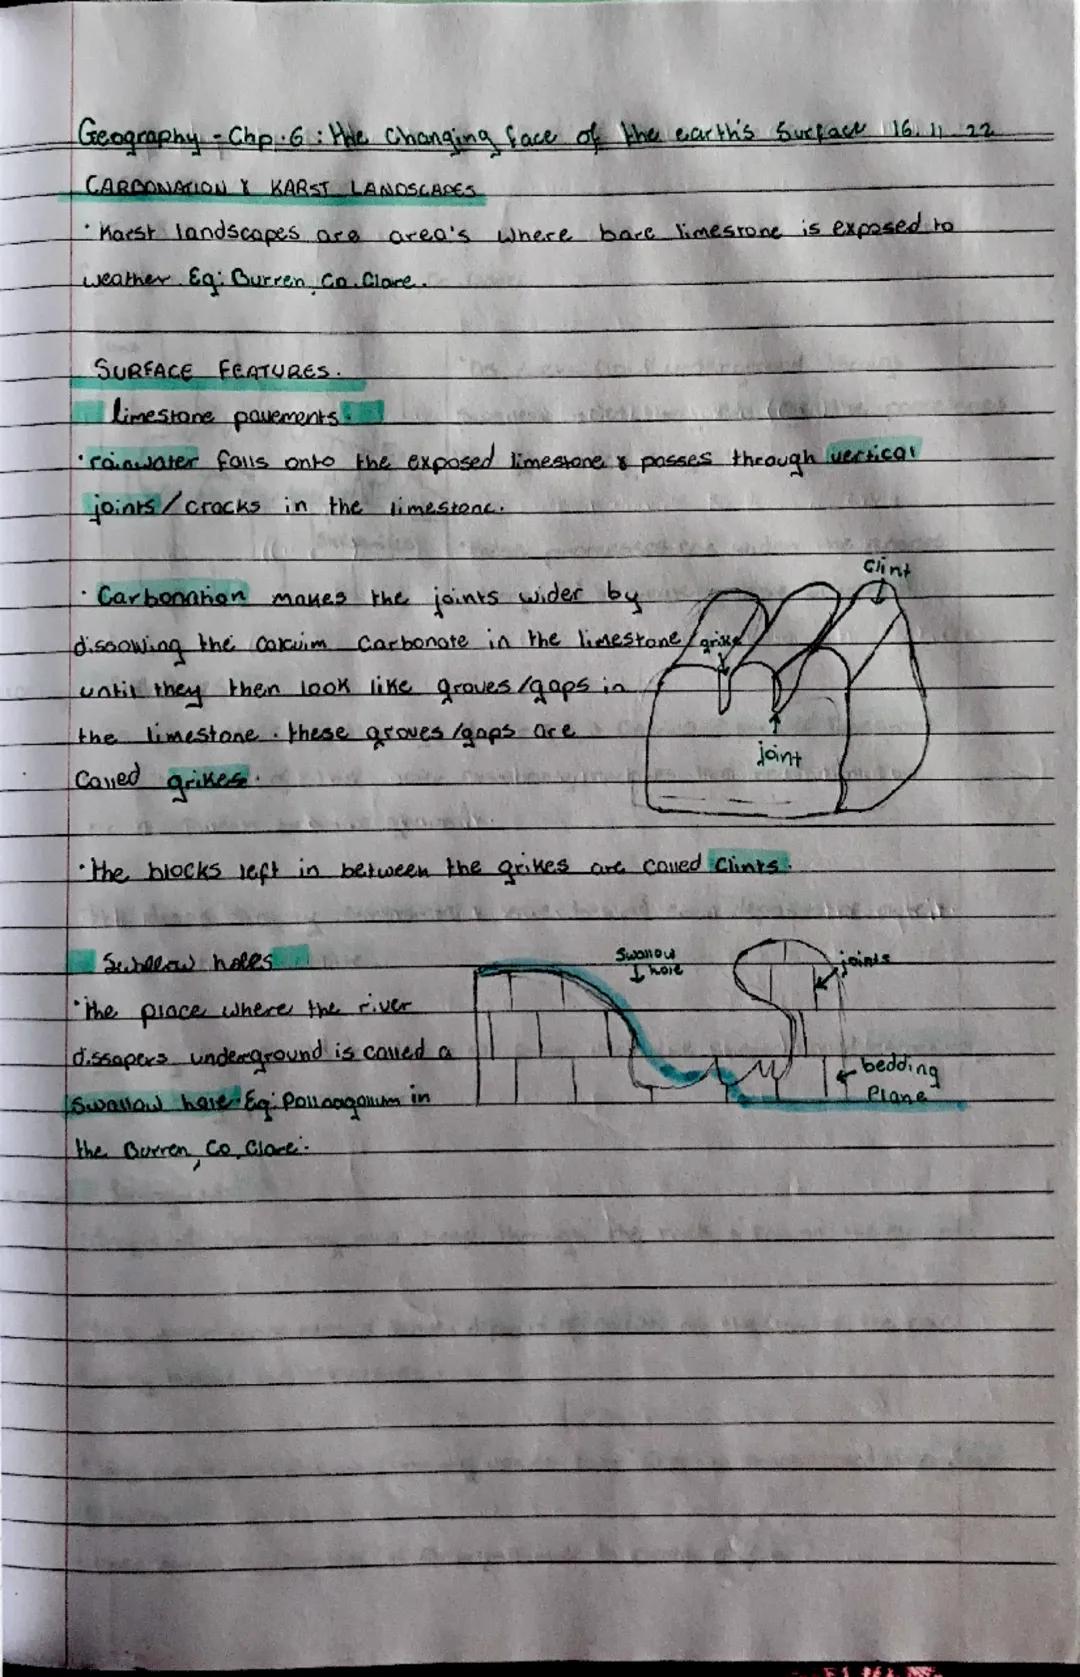 Geography - Chp.6 : the Changing face of the earth's Surface 16.11.22
CARBONATION & KARST LANDSCAPES
· Karst landscapes are area's where bare limestone is exposed to
weather. Eg: Burren, Co. Clare.
SURFACE FEATURES.
limestone pavements.
· rainwater falls onto the exposed limestone & passes through vertical
joints/cracks in the limestone.
Clint
· Carbonation makes the joints wider by
dissowing the calcuim Carbonate in the limestone/ grike
until they then look like groves/gaps in
the limestone. these groves/gaps are
joint
Called grikes.
· the blocks left in between the grikes are called Clints.
Swallow holes
Swallow hole
joints
· the place where the river
dissapers underground is called a
bedding
Plane
Swallow hole. Eg: Pollnagollum in
the Burren, Co, Clare.